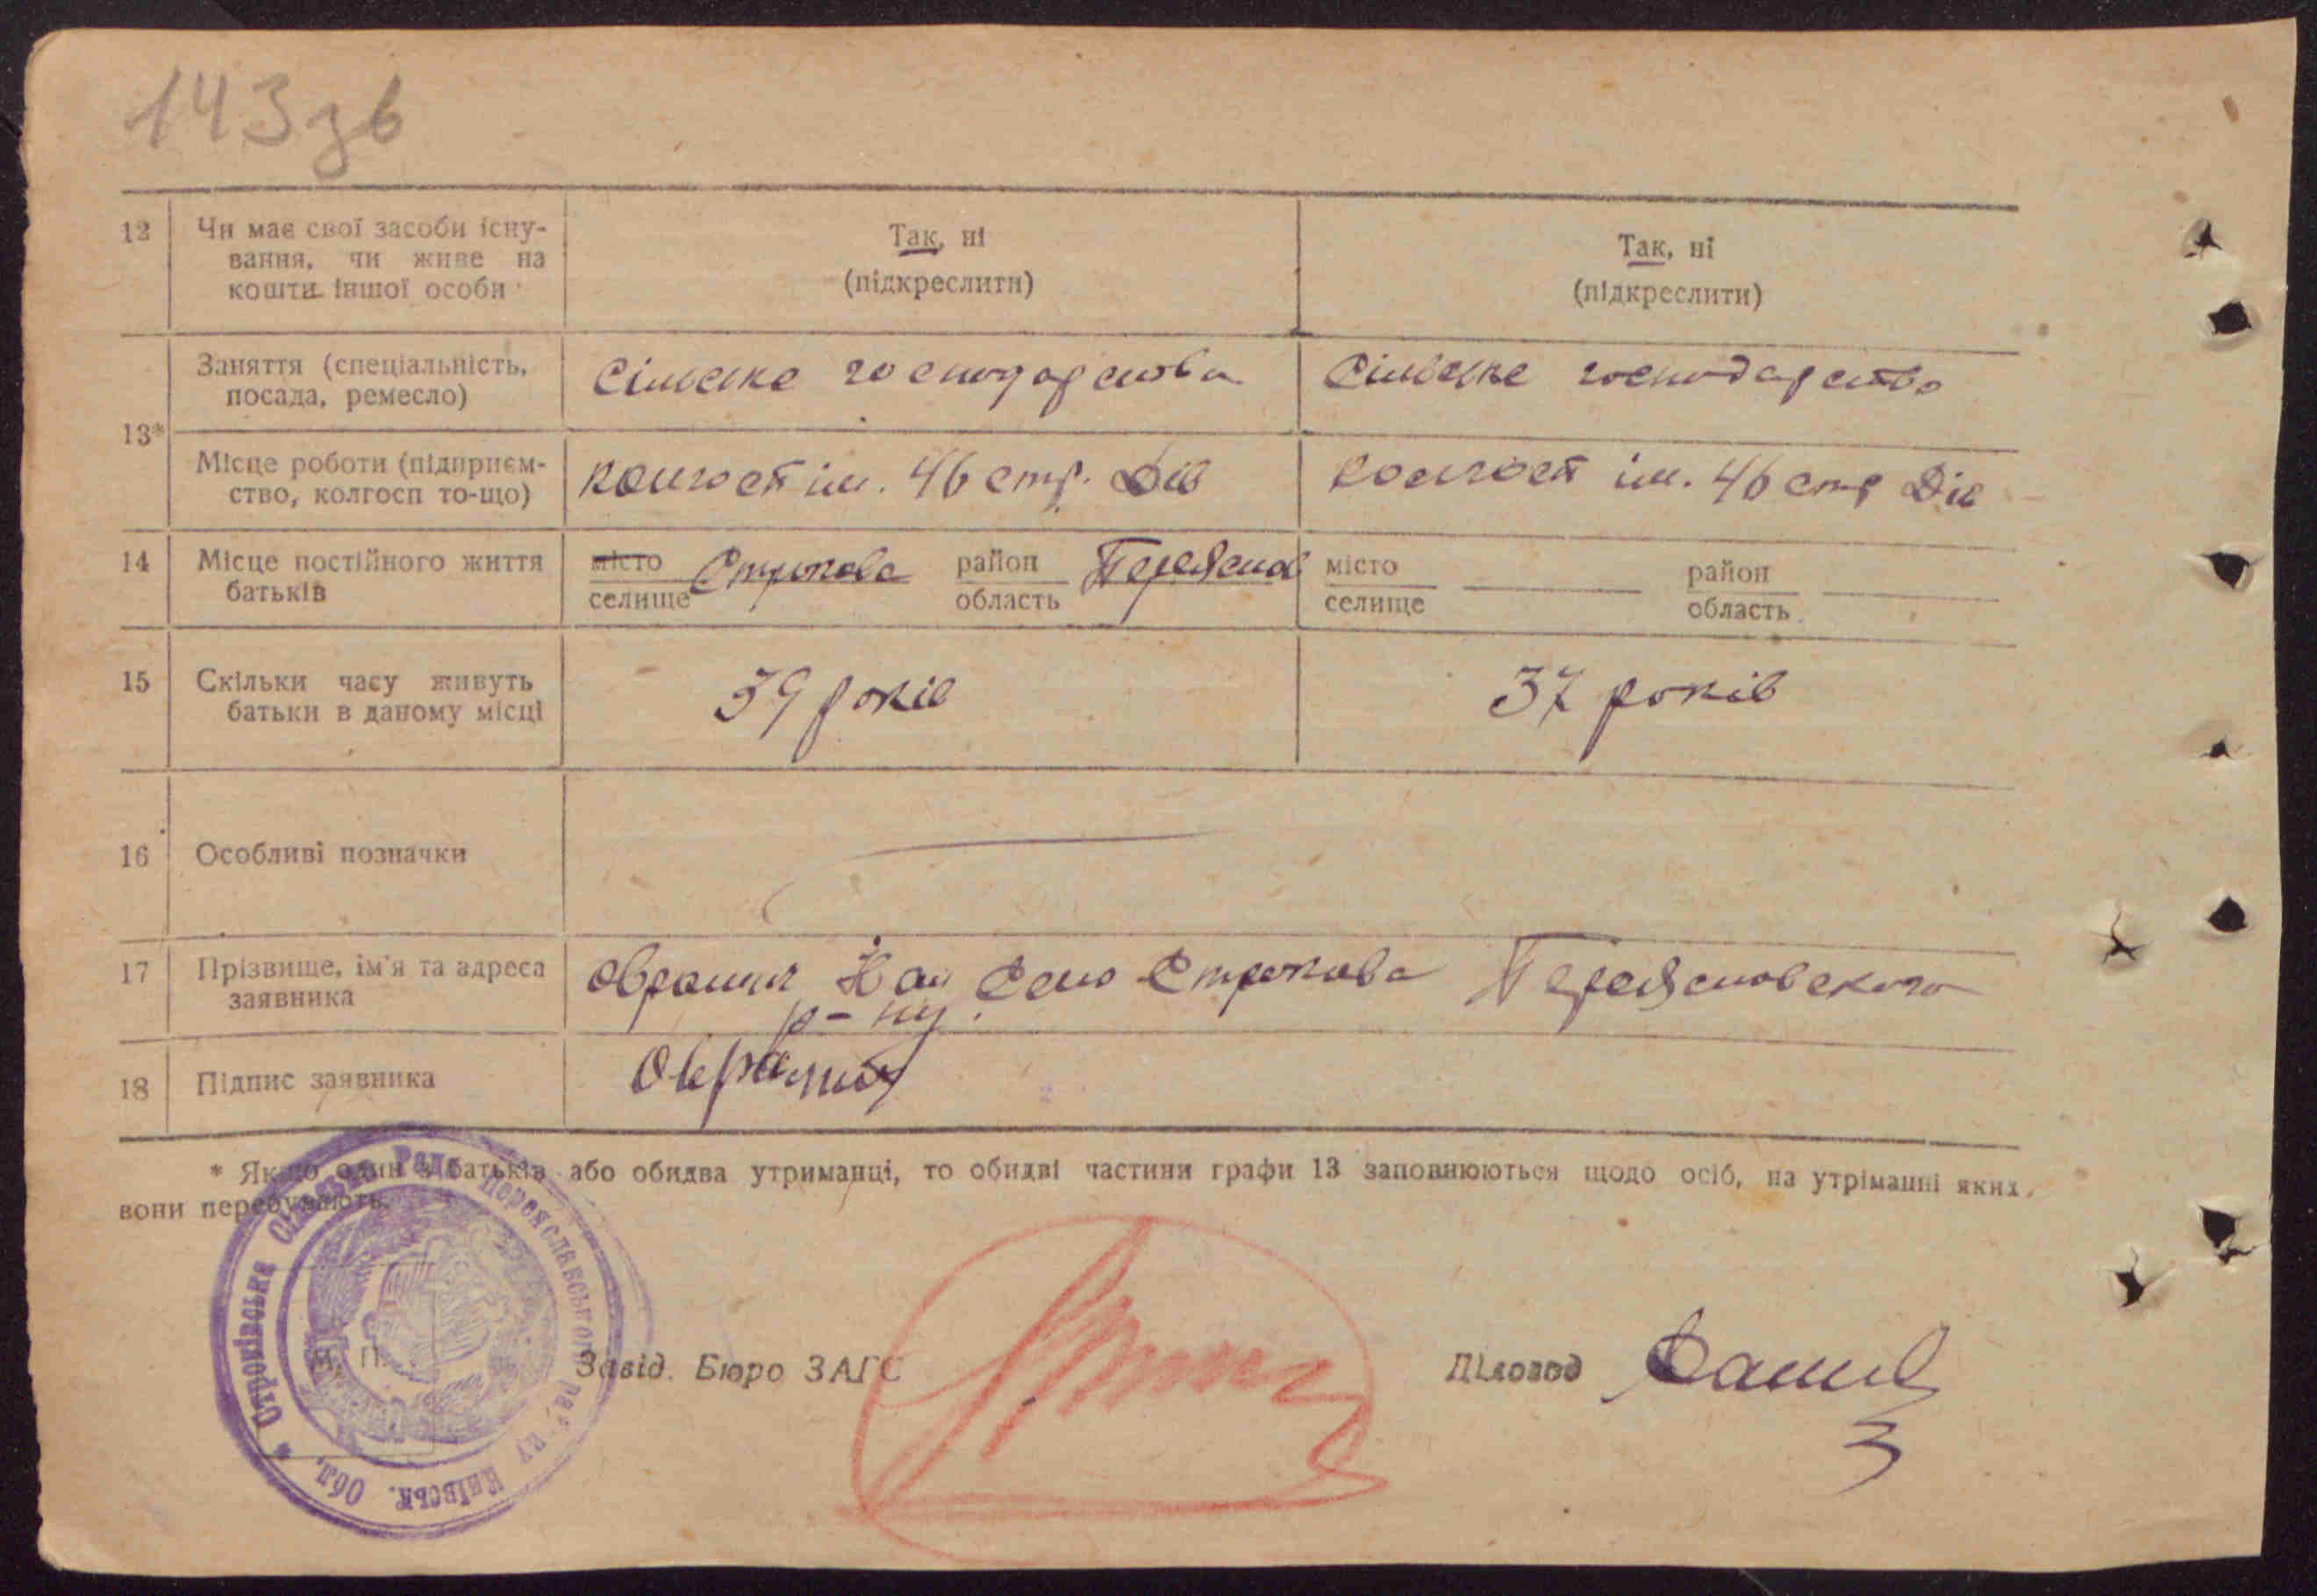 143зв
12 Чи має свої засоби існу-
вання, чи живе на
кошти іншої особи
Так, ні
(підкреслити)
Так, ні
(підкреслити)
13*
Заняття (спеціальність,
посада, ремесло)
Сільське господарство
Сільське господарство
Місце роботи (підприєм-
ство, колгосп то-що)
колгосп ім. 46 стр. Див
колгосп ім. 46 стр Див
14 Місце постійного життя
батьків
місто
селище
Строкова
район
область
Переяслов
місто
селище
район
область
15 Скільки часу живуть
батьки в даному місці
39 років
37 років
16 Особливі позначки
17 Прізвище, ім'я та адреса
заявника
Село Строкова Переясловского
р-ну.
18 Підпис заявника
* Якщо один з батьків або обидва утриманці, то обидві частини графи 13 заповнюються щодо осіб, на утріманні яких
вони перебувають.
* Строківська Сільська Рада Переяславського району Київськ. Обл.
М. П.
Завід. Бюро ЗАГС
Діловод